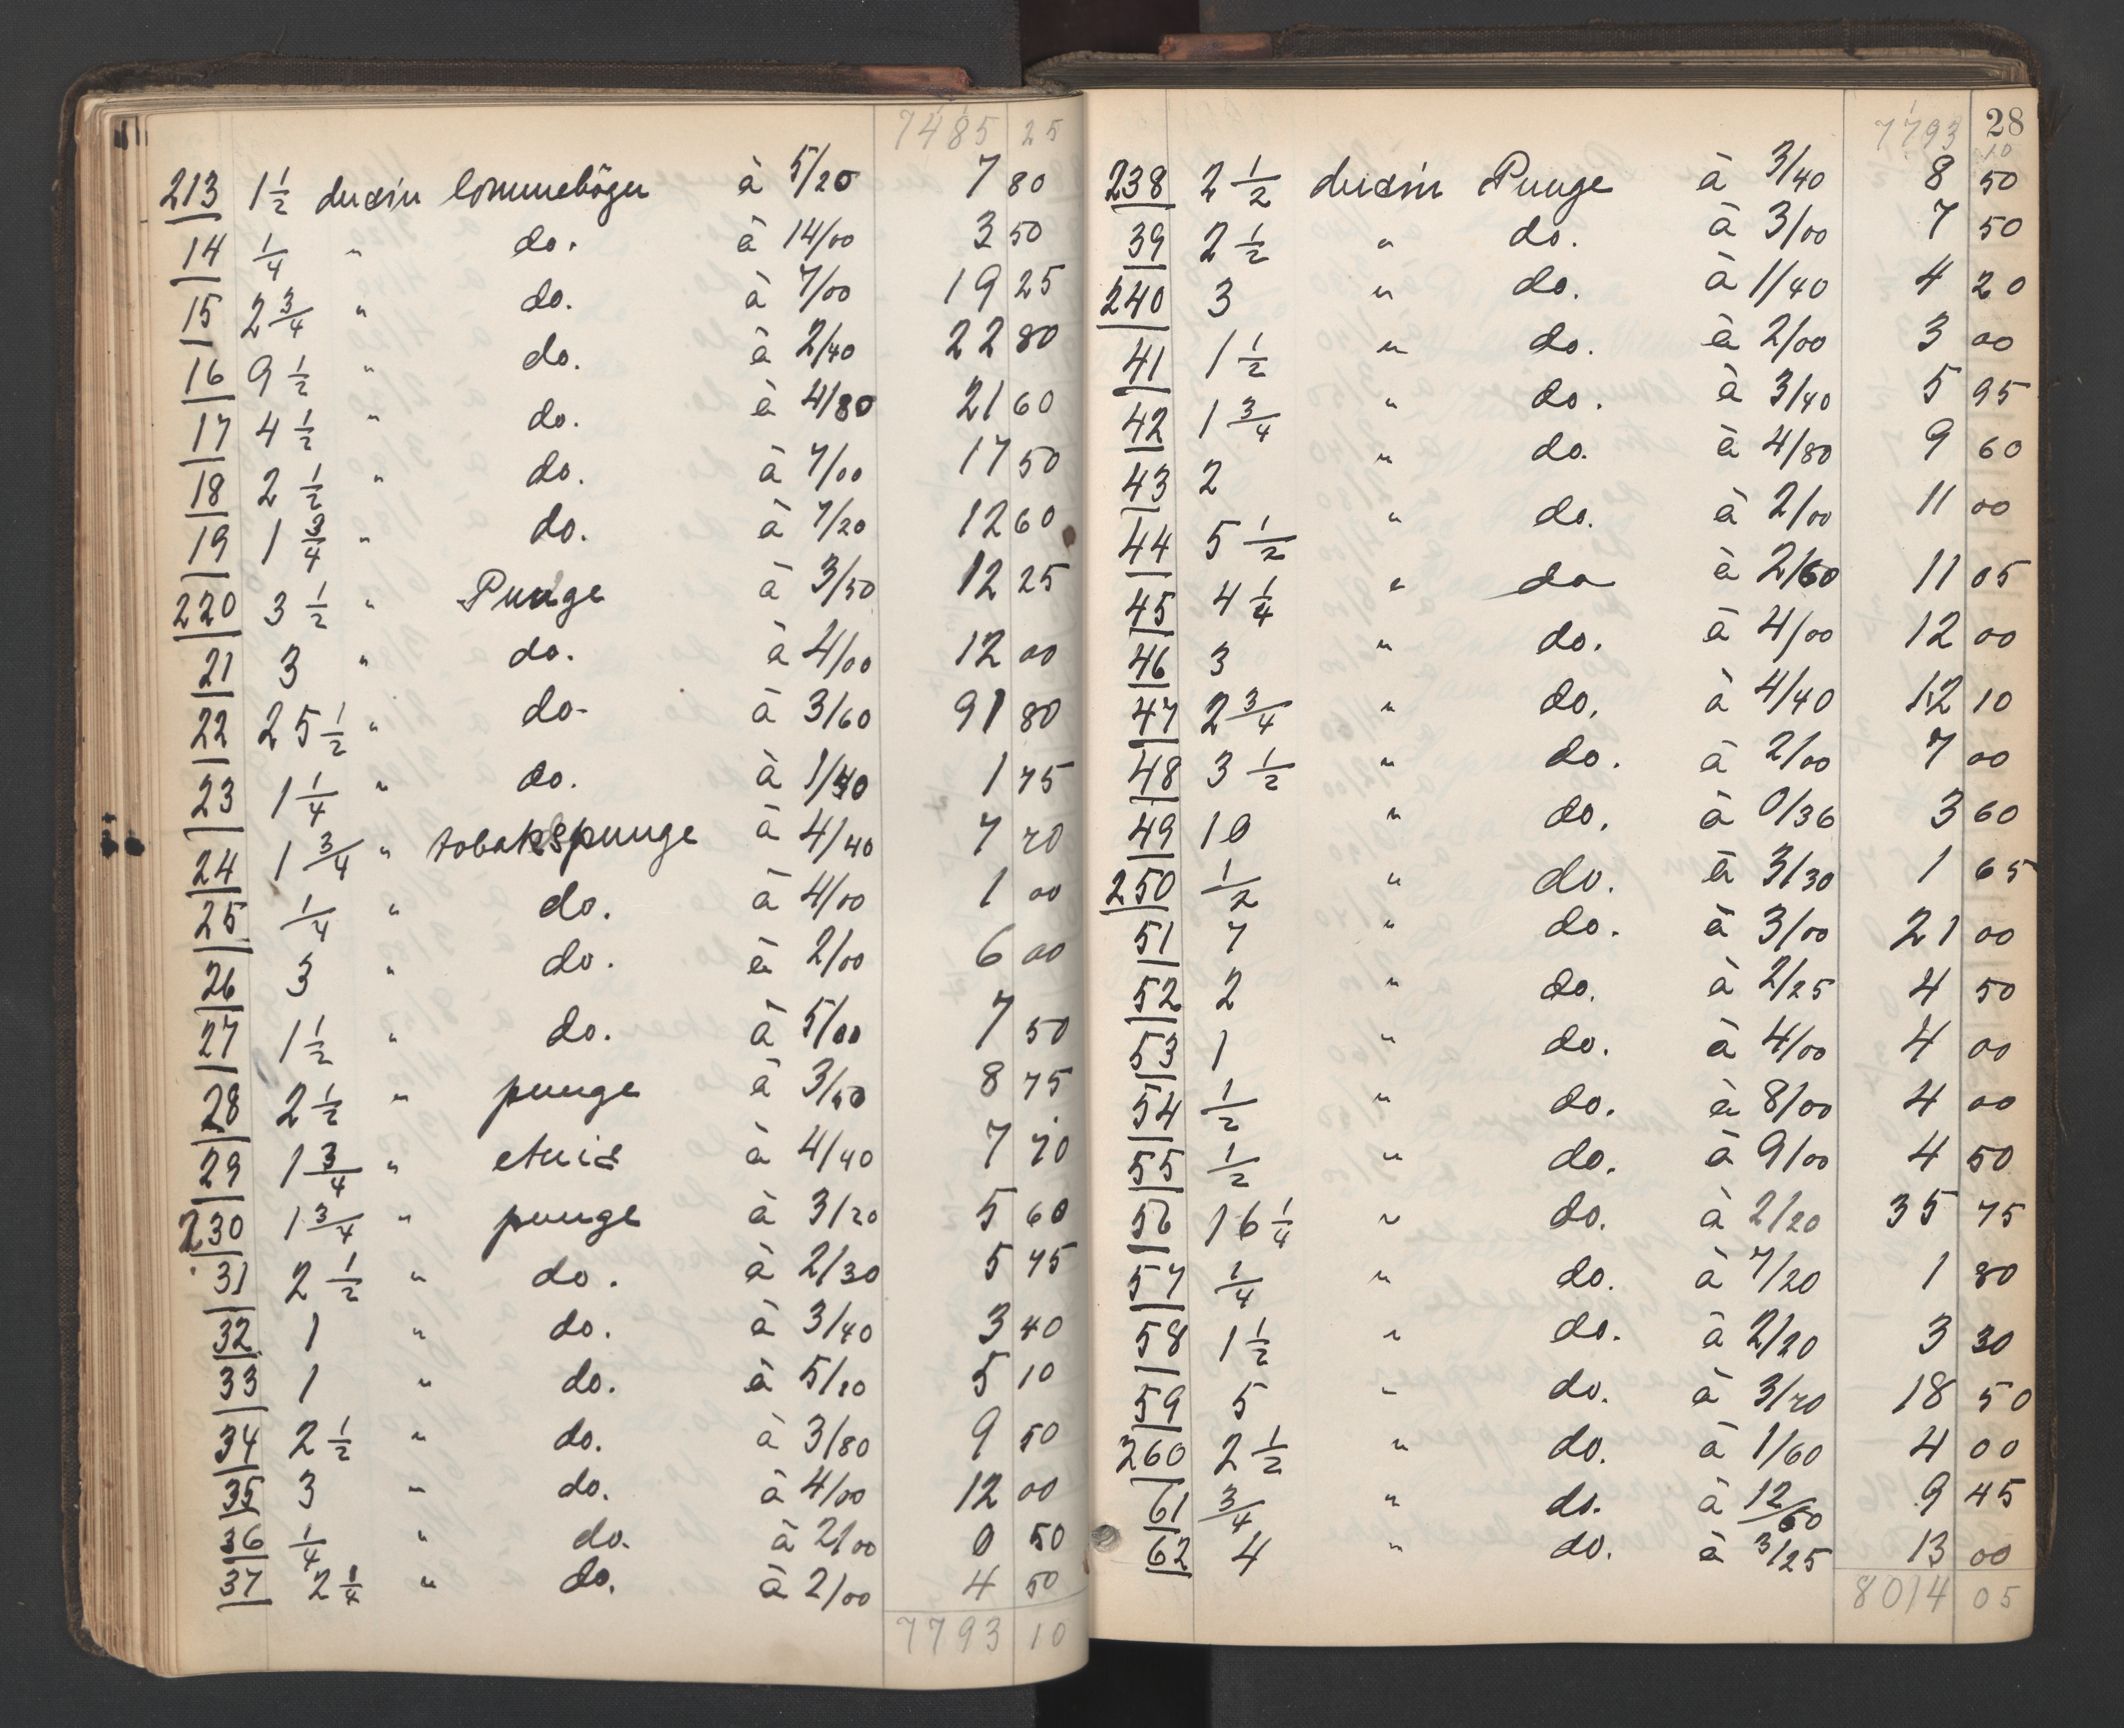 7485 25
213 1 1/2 dusin lommebøger à 5/20 7 80
14 1/4 " do. à 14/00 3 50
15 2 3/4 " do. à 7/00 19 25
16 9 1/2 " do. à 2/40 22 80
17 4 1/2 " do. à 4/80 21 60
18 2 1/2 " do. à 7/00 17 50
19 1 3/4 " do. à 7/20 12 60
220 3 1/2 " Punge à 3/50 12 25
21 3 " do. à 4/00 12 00
22 25 1/2 " do- à 3/60 91 80
23 1 1/4 " do. à 1/40 1 75
24 1 3/4 " tobakspunge à 4/40 7 70
25 1/4 " do. à 4/00 1 00
26 3 " do. à 2/00 6 00
27 1 1/2 " do. à 5/00 7 50
28 2 1/2 " punge à 3/50 8 75
29 1 3/4 " etuis à 4/40 7 70
230 1 3/4 " punge à 3/20 5 60
31 2 1/2 " do. à 2/30 5 75
32 1 " do. à 3/40 3 40
33 1 " do. à 5/10 5 10
34 2 1/2 " do. à 3/80 9 50
35 3 " do. à 4/00 12 00
36 1/4 " do. à 2/00 0 50
37 2 1/4 " do. à 2/00 4 50
7793 10
28
7793 10
238 2 1/2 dusin Punge à 3/40 8 50
39 2 1/2 " do. à 3/00 7 50
240 3 " do. à 1/40 4 20
41 1 1/2 " do. à 2/00 3 00
42 1 3/4 " do. à 3/40 5 95
43 2 " do. à 4/80 9 60
44 5 1/2 " do. à 2/00 11 00
45 4 1/4 " do à 2/60 11 05
46 3 " do. à 4/00 12 00
47 2 3/4 " do. à 4/40 12 10
48 3 1/2 " do. à 2/00 7 00
49 10 " do. à 0/36 3 60
250 1/2 " do. à 3/30 1 65
51 7 " do. à 3/00 21 00
52 2 " do. à 2/25 4 50
53 1 " do. à 4/00 4 00
54 1/2 " do. à 8/00 4 00
55 1/2 " do. à 9/00 4 50
56 16 1/4 " do. à 2/20 35 75
57 1/4 " do. à 7/20 1 80
58 1 1/2 " do. à 2/20 3 30
59 5 " do. à 3/70 18 50
260 2 1/2 " do. à 1/60 4 00
61 3/4 " do. à 12/60 9 45
62 4 " do. à 3/25 13 00
8014 05